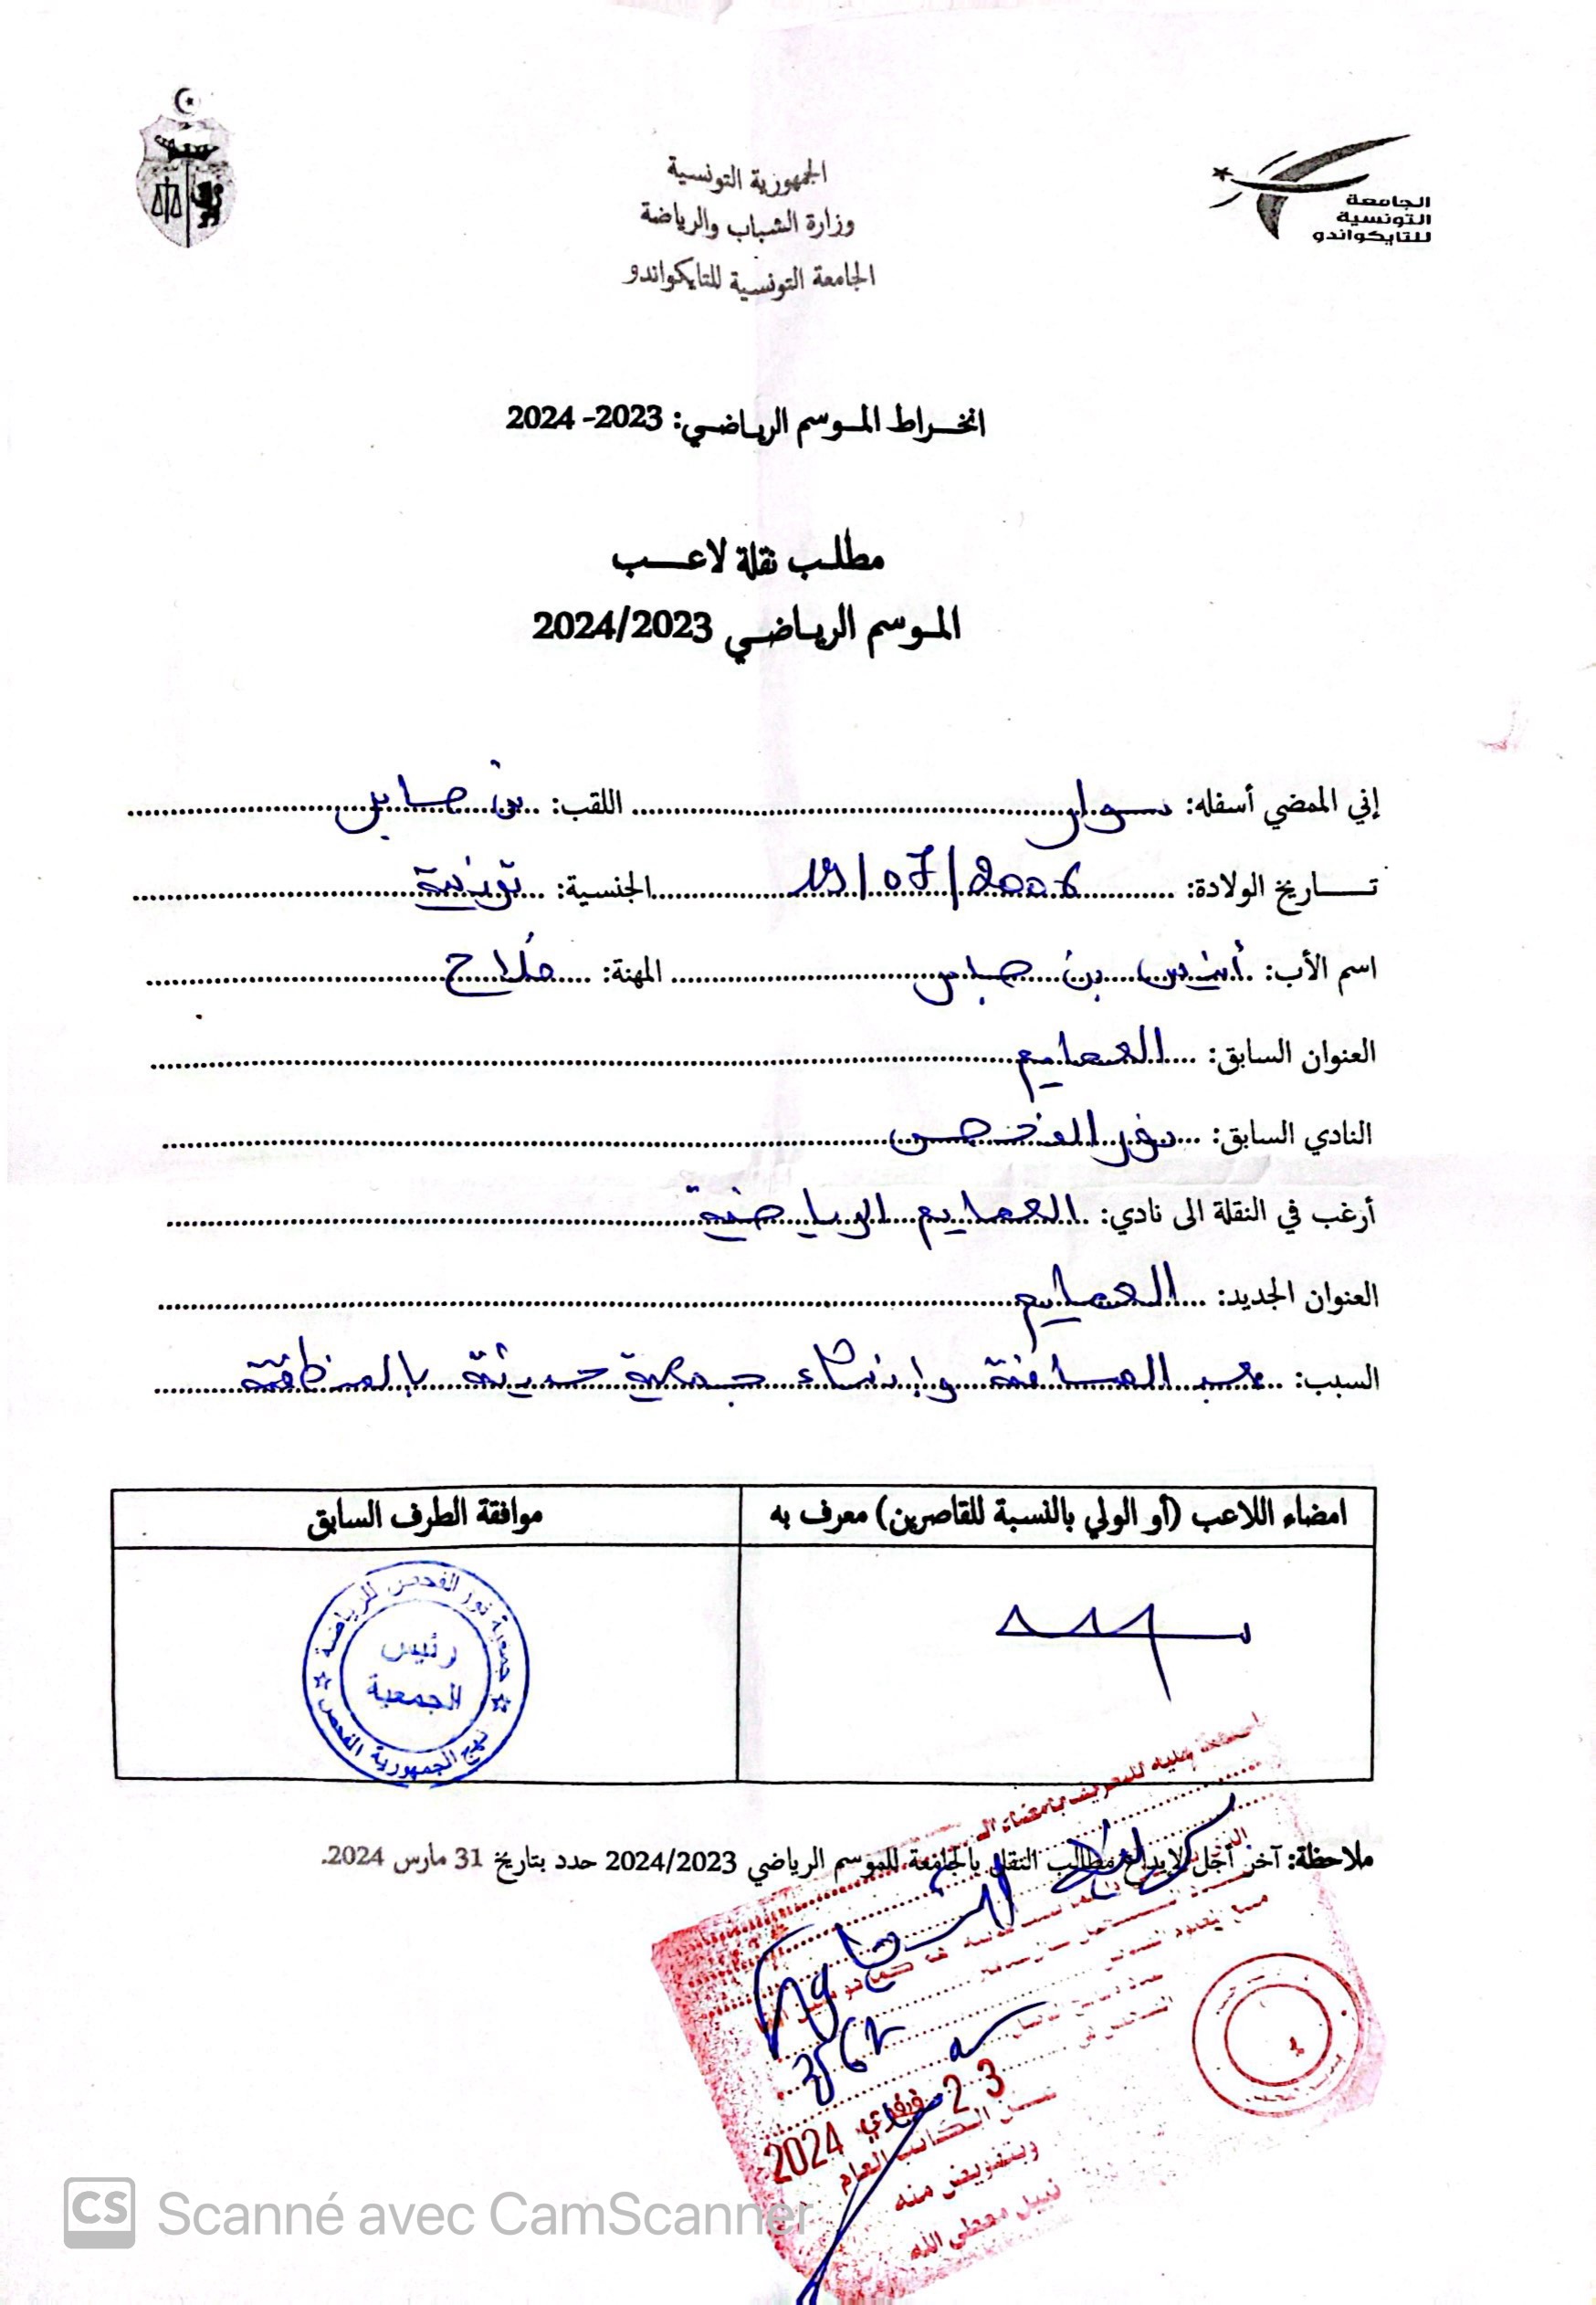 الجمهورية التونسية
وزارة الشباب والرياضة
الجامعة التونسية للتايكواندو
الجامعة
التونسية
للتايكواندو
انخراط الموسم الرياضي: 2023- 2024
مطلب نقلة لاعب
الموسم الرياضي 2024/2023
إني الممضي أسفله: سوار اللقب: بن صابر
تاريخ الولادة: 19/07/2006 الجنسية: تونسية
اسم الأب: أنيس بن صابر المهنة: فلاح
العنوان السابق: العمايم
النادي السابق: نور الفحص
أرغب في النقلة الى نادي: العمايم الرياضية
العنوان الجديد: العمايم
السبب: المسافة وإنشاء جمعية حديثة بالمنطقة
امضاء اللاعب (أو الولي بالنسبة للقاصرين) معرف به
موافقة الطرف السابق
جمعية نور الفحص للرياضة
رئيس
الجمعية
نهج الجمهورية الفحص
ملاحظة: آخر أجل لإيداع مطالب النقل بالجامعة للموسم الرياضي 2024/2023 حدد بتاريخ 31 مارس 2024.
23 فيفري 2024
الكاتب العام
وبتفويض منه
نبيل معطى الله
CS Scanné avec CamScanner